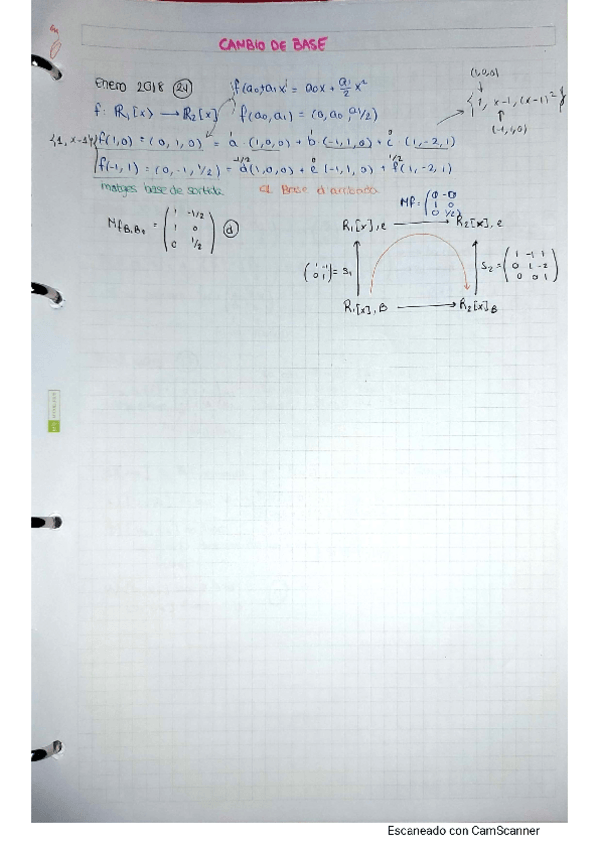 CANBIO DE BASE
ENERO 2018 (24) f(a₀+a₁x) = a₀x + a₁/2 x²
(1,0,0)
f: ℝ₁[x] → ℝ₂[x] f(a₀,a₁) = (0, a₀, a₁/2)
{1, x-1, (x-1)²}
(-1,1,0)
{1, x-1} f(1,0) = (0,1,0) = a · (1,0,0) + b · (-1,1,0) + c · (1,-2,1)
f(-1,1) = (0,-1,1/2) = d(1,0,0) + e(-1,1,0) + f(1,-2,1)
imatges base de sortida a Base d'arribada
Mf B₁B₂ = (1 -1/2
1 0
0 1/2) (d)
Mf: (0 0
1 0
0 1/2)
R₁[x], e → R₂[x], e
(1 -1
0 1) = S₁
S₂ = (1 -1 1
0 1 -2
0 0 1)
R₁[x], B → R₂[x] B
Escaneado con CamScanner